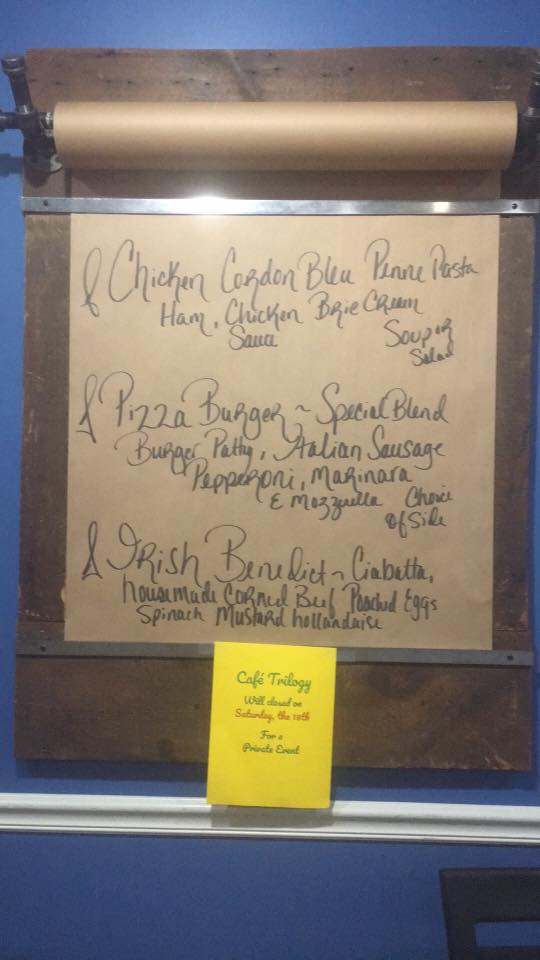 Chicken Cordon Bleu Penne Pasta
Ham, Chicken Brie Cream
Sauce
Soup or
Salad
Pizza Burger ~ Special Blend
Burger Patty, Italian Sausage
Pepperoni, Marinara
& Mozzarella
Choice
of Side
Irish Benedict ~ Ciabatta,
housemade Corned Beef Poached Eggs
Spinach Mustard hollandaise
Café Trilogy
Will closed on
Saturday, the 18th
For a
Private Event